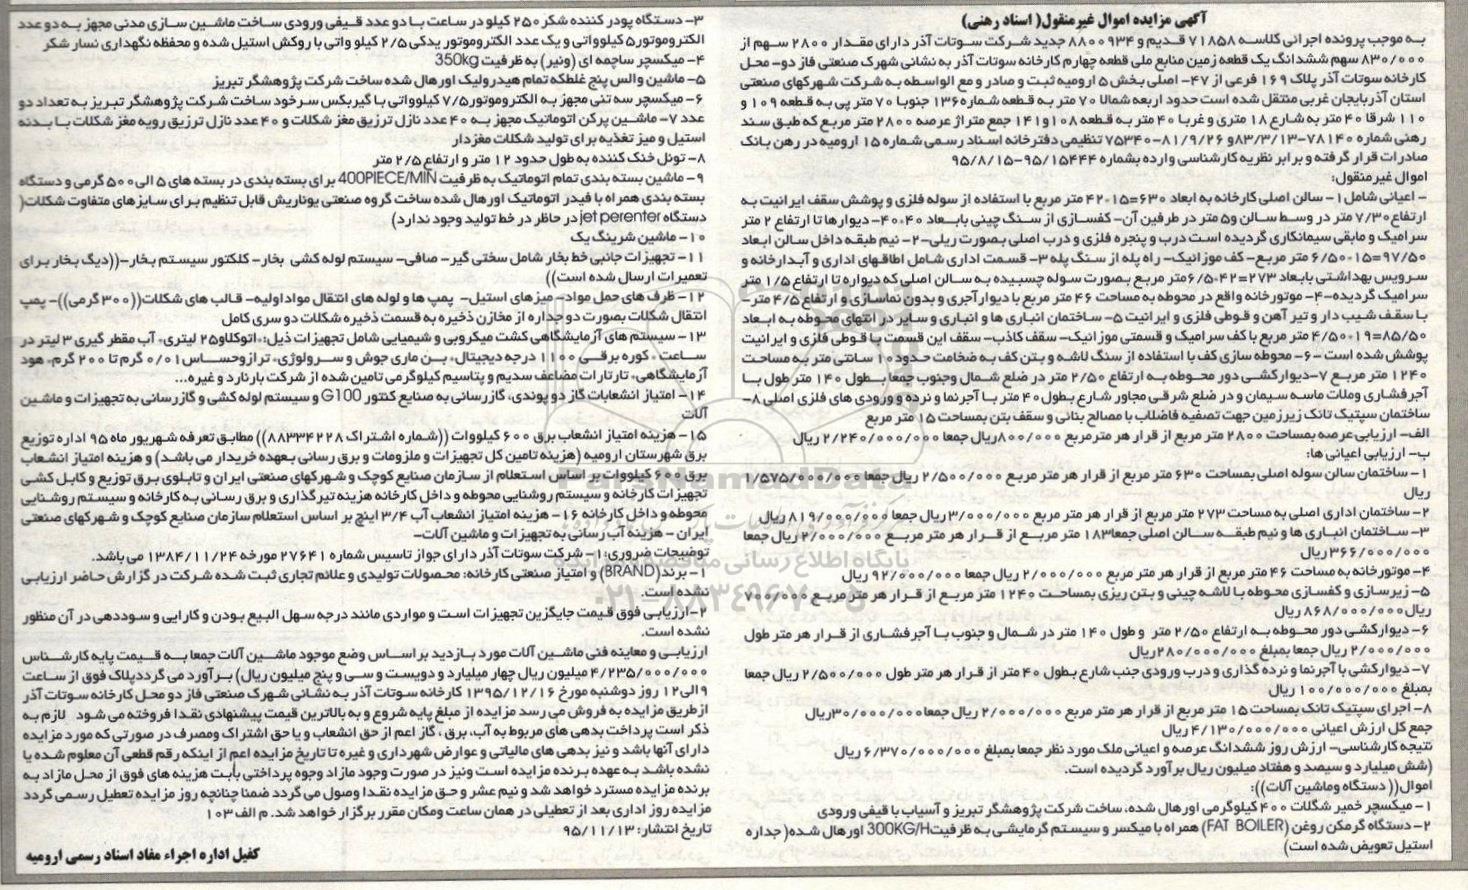 آگهی مزایده اموال غیرمنقول( اسناد رهنی)
به موجب پرونده اجرائی کلاسه ۷۱۸۵۸ قدیم و ۸۸۰۰۹۳۴ جدید شرکت سوتات آذر دارای مقدار ۲۸۰۰ سهم از
۸۳۰/۰۰۰ سهم ششدانگ یک قطعه زمین منابع ملی قطعه چهارم کارخانه سوتات آذر به نشانی شهرک صنعتی فاز دو- محل
کارخانه سوتات آذر پلاک ۱۶۹ فرعی از ۴۷- اصلی بخش ۵ ارومیه ثبت و صادر و مع الواسطه به شرکت شهرکهای صنعتی
استان آذربایجان غربی منتقل شده است حدود اربعه شمالا ۷۰ متر به قطعه شماره ۱۳۶ جنوبا ۷۰ متر پی به قطعه ۱۰۹ و
۱۱۰ شرقا ۴۰ متر به شارع ۱۸ متری و غربا ۴۰ متر به قطعه ۱۰۸ و ۱۴۱ جمع متراژ عرصه ۲۸۰۰ متر مربع که طبق سند
رهنی شماره ۷۸۱۴۰-۸۳/۳/۱۳ و ۸۱/۹/۲۶-۷۵۳۴۰ تنظیمی دفترخانه اسناد رسمی شماره ۱۵ ارومیه در رهن بانک
صادرات قرار گرفته و برابر نظریه کارشناسی وارده بشماره ۹۵/۱۵۴۴۴-۹۵/۸/۱۵
اموال غیرمنقول:
- اعیانی شامل ۱- سالن اصلی کارخانه به ابعاد ۶۳۰=۱۵*۴۲ متر مربع با استفاده از سوله فلزی و پوشش سقف ایرانیت به
ارتفاع ۷/۳۰ متر در وسط سالن و ۵ متر در طرفین آن- کفسازی از سنگ چینی بابعاد ۴۰*۴۰- دیوارها تا ارتفاع ۲ متر
سرامیک و مابقی سیمانکاری گردیده است درب و پنجره فلزی و درب اصلی بصورت ریلی-۲- نیم طبقه داخل سالن ابعاد
۹۷/۵۰=۱۵*۶/۵۰ متر مربع- کف موزائیک- راه پله از سنگ پله ۳- قسمت اداری شامل اطاقهای اداری و آبدارخانه و
سرویس بهداشتی بابعاد ۲۷۳=۴۲*۶/۵ متر مربع بصورت سوله چسبیده به سالن اصلی که دیواره تا ارتفاع ۱/۵ متر
سرامیک گردیده-۴- موتورخانه واقع در محوطه به مساحت ۴۶ متر مربع با دیوارآجری و بدون نماسازی و ارتفاع ۴/۵ متر-
با سقف شیب دار و تیر آهن و قوطی فلزی و ایرانیت ۵- ساختمان انباری ها و انباری و سایر در انتهای محوطه به ابعاد
۸۵/۵۰=۱۹*۴/۵۰ متر مربع با کف سرامیک و قسمتی موزائیک- سقف کاذب- سقف این قسمت با قوطی فلزی و ایرانیت
پوشش شده است -۶- محوطه سازی کف با استفاده از سنگ لاشه و بتن کف به ضخامت حدود ۱۰ سانتی متر به مساحت
۱۲۴۰ متر مربع ۷-دیوارکشی دور محوطه به ارتفاع ۲/۵۰ متر در ضلع شمال وجنوب جمعا بطول ۱۴۰ متر طول با
آجرفشاری وملات ماسه سیمان و در ضلع شرقی مجاور شارع بطول ۴۰ متر با آجرنما و نرده و ورودی های فلزی اصلی ۸-
ساختمان سپتیک تانک زیرزمین جهت تصفیه فاضلاب با مصالح بنائی و سقف بتن بمساحت ۱۵ متر مربع
الف- ارزیابی عرصه بمساحت ۲۸۰۰ متر مربع از قرار هر مترمربع ۸۰۰/۰۰۰ریال جمعا ۲/۲۴۰/۰۰۰/۰۰۰ ریال
ب- ارزیابی اعیانی ها:
۱- ساختمان سالن سوله اصلی بمساحت ۶۳۰ متر مربع از قرار هر متر مربع ۲/۵۰۰/۰۰۰ ریال جمعا ۱/۵۷۵/۰۰۰/۰۰۰
ریال
۲- ساختمان اداری اصلی به مساحت ۲۷۳ متر مربع از قرار هر متر مربع ۳/۰۰۰/۰۰۰ریال جمعا ۸۱۹/۰۰۰/۰۰۰ ریال
۳- ساختمان انباری ها و نیم طبقه سالن اصلی جمعا۱۸۳ متر مربع از قرار هر متر مربع ۲/۰۰۰/۰۰۰ ریال جمعا
۳۶۶/۰۰۰/۰۰۰ریال
۴- موتورخانه به مساحت ۴۶ متر مربع از قرار هر متر مربع ۲/۰۰۰/۰۰۰ ریال جمعا ۹۲/۰۰۰/۰۰۰ ریال
۵- زیرسازی و کفسازی محوطه با لاشه چینی و بتن ریزی بمساحت ۱۲۴۰ متر مربع از قرار هر متر مربع ۷۰۰/۰۰۰
ریال۸۶۸/۰۰۰/۰۰۰ ریال
۶- دیوارکشی دور محوطه به ارتفاع ۲/۵۰ متر و طول ۱۴۰ متر در شمال و جنوب با آجرفشاری از قرار هر متر طول
۲/۰۰۰/۰۰۰ ریال جمعا بمبلغ ۲۸۰/۰۰۰/۰۰۰ریال
۷- دیوارکشی با آجرنما و نرده گذاری و درب ورودی جنب شارع بطول ۴۰ متر از قرار هر متر طول ۲/۵۰۰/۰۰۰ ریال جمعا
بمبلغ ۱۰۰/۰۰۰/۰۰۰ ریال
۸- اجرای سپتیک تانک بمساحت ۱۵ متر مربع از قرار هر متر مربع ۲/۰۰۰/۰۰۰ ریال جمعا۳۰/۰۰۰/۰۰۰ریال
جمع کل ارزش اعیانی ۴/۱۳۰/۰۰۰/۰۰۰ ریال
نتیجه کارشناسی- ارزش روز ششدانگ عرصه و اعیانی ملک مورد نظر جمعا بمبلغ ۶/۳۷۰/۰۰۰/۰۰۰ ریال
(شش میلیارد و سیصد و هفتاد میلیون ریال برآورد گردیده است.
اموال(( دستگاه وماشین آلات)):
۱- میکسچر خمیر شگلات ۴۰۰ کیلوگرمی اورهال شده، ساخت شرکت پژوهشگر تبریز و آسیاب با قیفی ورودی
۲- دستگاه گرمکن روغن (FAT BOILER) همراه با میکسر و سیستم گرمایشی به ظرفیت300KG/H اورهال شده( جداره
استیل تعویض شده است)
۳- دستگاه پودر کننده شکر ۲۵۰ کیلو در ساعت با دو عدد قیفی ورودی ساخت ماشین سازی مدنی مجهز به دو عدد
الکتروموتور۵ کیلوواتی و یک عدد الکتروموتور یدکی ۲/۵ کیلو واتی با روکش استیل شده و محفظه نگهداری نسار شکر
۴- میکسچر ساچمه ای (ونیر) به ظرفیت 350kg
۵- ماشین والس پنج غلطکه تمام هیدرولیک اورهال شده ساخت شرکت پژوهشگر تبریز
۶- میکسچر سه تنی مجهز به الکتروموتور ۷/۵ کیلوواتی با گیربکس سرخود ساخت شرکت پژوهشگر تبریز به تعداد دو
عدد ۷- ماشین پرکن اتوماتیک مجهز به ۴۰ عدد نازل ترزیق مغز شکلات و ۴۰ عدد نازل ترزیق رویه مغز شکلات با بدنه
استیل و میز تغذیه برای تولید شکلات مغزدار
۸- تونل خنک کننده به طول حدود ۱۲ متر و ارتفاع ۲/۵ متر
۹- ماشین بسته بندی تمام اتوماتیک به ظرفیت 400PIECE/MIN برای بسته بندی در بسته های ۵ الی۵۰۰ گرمی و دستگاه
بسته بندی همراه با فیدر اتوماتیک اورهال شده ساخت گروه صنعتی یوناریش قابل تنظیم برای سایزهای متفاوت شکلات(
دستگاه jet perenter در حاظر در خط تولید وجود ندارد)
۱۰- ماشین شرینگ پک
۱۱- تجهیزات جانبی خط بخار شامل سختی گیر- صافی- سیستم لوله کشی بخار- کلکتور سیستم بخار-((دیگ بخار برای
تعمیرات ارسال شده است))
۱۲- ظرف های حمل مواد- میزهای استیل- پمپ ها و لوله های انتقال مواداولیه- قالب های شکلات((۳۰۰ گرمی))- پمپ
انتقال شکلات بصورت دو جداره از مخازن ذخیره به قسمت ذخیره شکلات دو سری کامل
۱۳- سیستم های آزمایشگاهی کشت میکروبی و شیمیایی شامل تجهیزات ذیل:* اتوکلاو۲۵ لیتری* آب مقطر گیری ۳ لیتر در
ساعت * کوره برقی ۱۱۰۰ درجه دیجیتال* بن ماری جوش و سرولوژی* ترازوحساس ۰/۰۱ گرم تا ۲۰۰ گرم* هود
آزمایشگاهی* تارتارات مضاعف سدیم و پتاسیم کیلوگرمی تامین شده از شرکت بارنارد و غیره...
۱۴- امتیاز انشعابات گاز دو پوندی، گازرسانی به صنایع کنتور G100 و سیستم لوله کشی و گازرسانی به تجهیزات و ماشین
آلات
۱۵- هزینه امتیاز انشعاب برق ۶۰۰ کیلووات ((شماره اشتراک ۸۸۳۳۴۲۲۸)) مطابق تعرفه شهریور ماه ۹۵ اداره توزیع
برق شهرستان ارومیه (هزینه تامین کل تجهیزات و ملزومات و برق رسانی بعهده خریدار می باشد) و هزینه امتیاز انشعاب
برق ۶۰۰ کیلووات بر اساس استعلام از سازمان صنایع کوچک و شهرکهای صنعتی ایران و تابلوی برق توزیع و کابل کشی
تجهیزات کارخانه و سیستم روشنایی محوطه و داخل کارخانه هزینه تیرگذاری و برق رسانی به کارخانه و سیستم روشنایی
محوطه و داخل کارخانه ۱۶- هزینه امتیاز انشعاب آب ۳/۴ اینچ بر اساس استعلام سازمان صنایع کوچک و شهرکهای صنعتی
ایران - هزینه آب رسانی به تجهیزات و ماشین آلات-
توضیحات ضروری: ۱- شرکت سوتات آذر دارای جواز تاسیس شماره ۲۷۶۴۱ مورخه ۱۳۸۴/۱۱/۲۴ می باشد.
۱- برند(BRAND) و امتیاز صنعتی کارخانه: محصولات تولیدی و علائم تجاری ثبت شده شرکت در گزارش حاضر ارزیابی
نشده است.
۲-ارزیابی فوق قیمت جایگزین تجهیزات است و مواردی مانند درجه سهل البیع بودن و کارایی و سوددهی در آن منظور
نشده است.
ارزیابی و معاینه فنی ماشین آلات مورد بازدید بر اساس وضع موجود ماشین آلات جمعا به قیمت پایه کارشناس
۴/۲۳۵/۰۰۰/۰۰۰ میلیون ریال چهار میلیارد و دویست و سی و پنج میلیون ریال) برآورد می گرددپلاک فوق از ساعت
۹ الی ۱۲ روز دوشنبه مورخ ۱۳۹۵/۱۲/۱۶ کارخانه سوتات آذر به نشانی شهرک صنعتی فاز دو محل کارخانه سوتات آذر
ازطریق مزایده به فروش می رسد مزایده از مبلغ پایه شروع و به بالاترین قیمت پیشنهادی نقدا فروخته می شود لازم به
ذکر است پرداخت بدهی های مربوط به آب، برق ، گاز اعم از حق انشعاب و یا حق اشتراک ومصرف در صورتی که مورد مزایده
دارای آنها باشد و نیز بدهی های مالیاتی و عوارض شهرداری و غیره تا تاریخ مزایده اعم از اینکه رقم قطعی آن معلوم شده یا
نشده باشد به عهده برنده مزایده است ونیز در صورت وجود مازاد وجوه پرداختی بابت هزینه های فوق از محل مازاد به
برنده مزایده مسترد خواهد شد و نیم عشر و حق مزایده نقدا وصول می گردد ضمنا چنانچه روز مزایده تعطیل رسمی گردد
مزایده روز اداری بعد از تعطیلی در همان ساعت ومکان مقرر برگزار خواهد شد. م الف ۱۰۳
تاریخ انتشار: ۹۵/۱۱/۱۳
کفیل اداره اجراء مفاد اسناد رسمی ارومیه
ParsNamadData
پایگاه اطلاع رسانی مناقصه و مزایده